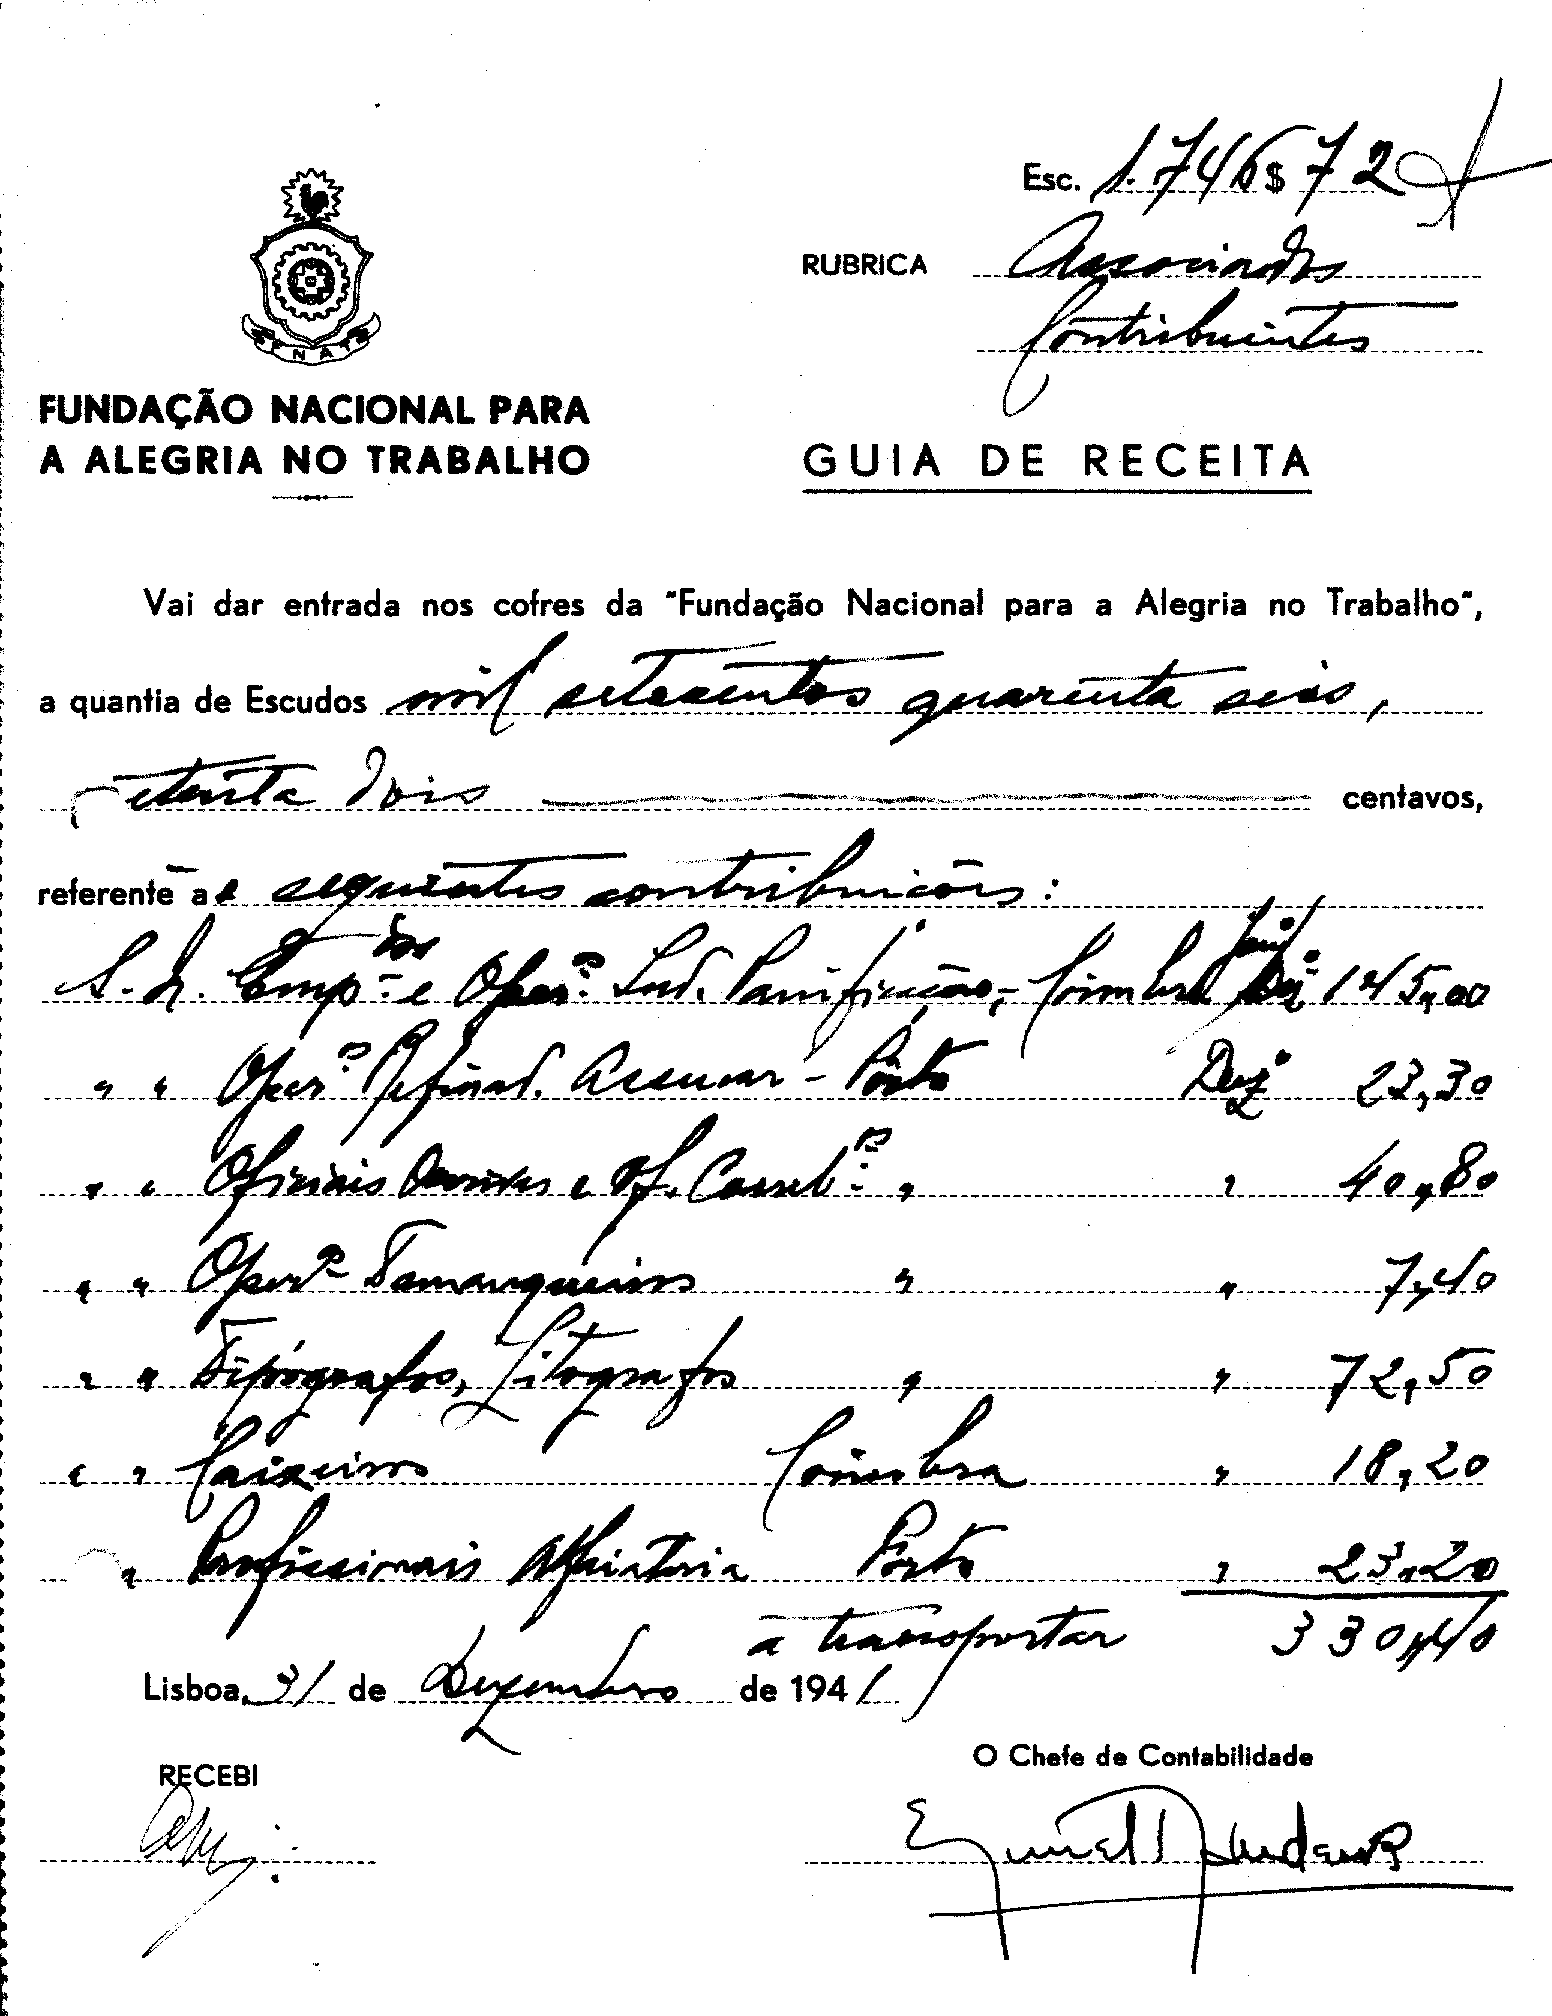 Esc. 1.746$72
RUBRICA Associados
Contribuintes
FNAT
FUNDAÇÃO NACIONAL PARA
A ALEGRIA NO TRABALHO
GUIA DE RECEITA
Vai dar entrada nos cofres da "Fundação Nacional para a Alegria no Trabalho",
a quantia de Escudos mil setecentos quarenta seis,
setenta dois centavos,
referente as seguintes contribuições:
S. N. Emp.dos e Oper.os Ind. Panificação, - Coimbra Dez 145,00
" " Oper.os Refinad. Assucar - Pôrto Dez 23,30
" " Oficiais e Of. " " 40,80
" " Oper.os Tamanqueiros " " 7,40
" " Tipógrafos, Litografos " " 72,50
" " Caixeiros Coimbra " 18,20
" Profissionais Alfaiataria Pôrto " 23,20
a transportar 330,40
Lisboa, 31 de Dezembro de 1941
O Chefe de Contabilidade
RECEBI